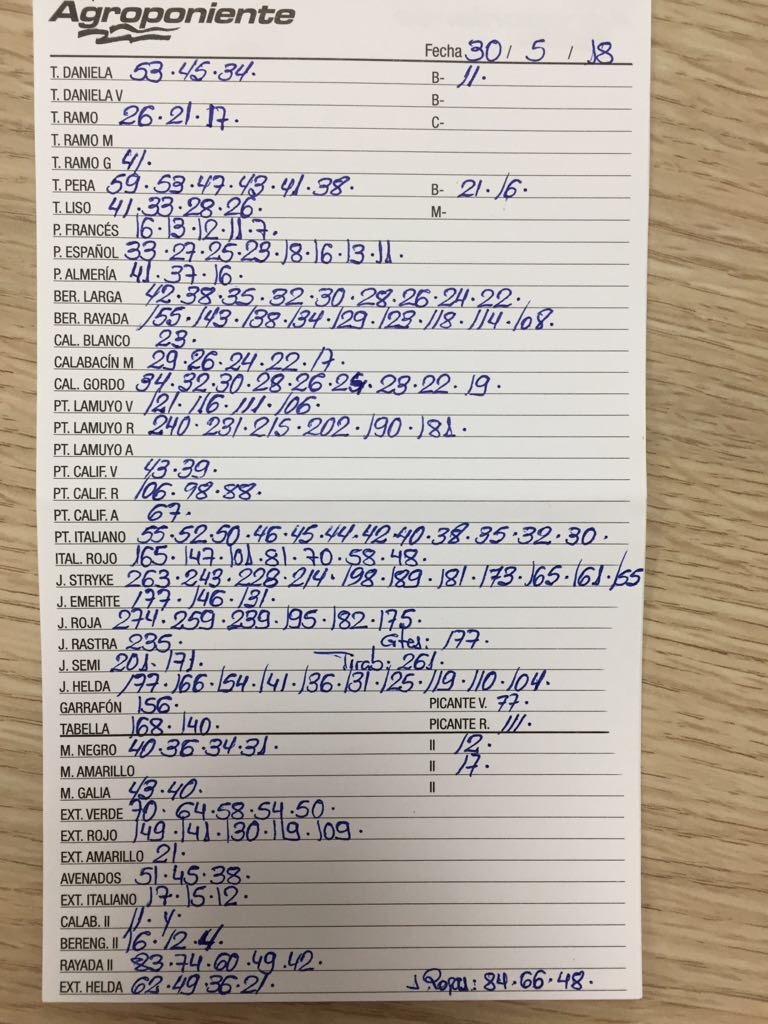 Agroponiente
Fecha 30 / 5 / 18
T. DANIELA 53.45.34. B- 11.
T. DANIELA V B-
T. RAMO 26.21.17. C-
T. RAMO M
T. RAMO G 41.
T. PERA 59.53.47.43.41.38. B- 21.16.
T. LISO 41.33.28.26. M-
P. FRANCÉS 16.13.12.11.7.
P. ESPAÑOL 33.27.25.23.18.16.13.11.
P. ALMERÍA 41.37.16.
BER. LARGA 42.38.35.32.30.28.26.24.22.
BER. RAYADA 155.143.138.134.129.123.118.114.108.
CAL. BLANCO 23.
CALABACÍN M 29.26.24.22.17.
CAL. GORDO 34.32.30.28.26.24.23.22.19.
PT. LAMUYO V 121.116.111.106.
PT. LAMUYO R 240.231.215.202.190.181.
PT. LAMUYO A
PT. CALIF. V 43.39.
PT. CALIF. R 106.98.88.
PT. CALIF. A 67.
PT. ITALIANO 55.52.50.46.45.44.42.40.38.35.32.30.
ITAL. ROJO 165.147.101.81.70.58.48.
J. STRYKE 263.243.228.214.198.189.181.173.165.161.155
J. EMERITE 177.146.131.
J. ROJA 274.259.239.195.182.175.
J. RASTRA 235. Gtes: 177.
J. SEMI 201.171. Tirab: 261.
J. HELDA 177.166.154.141.136.131.125.119.110.104.
GARRAFÓN 156. PICANTE V. 77.
TABELLA 168.140. PICANTE R. 111.
M. NEGRO 40.36.34.31. II 12.
M. AMARILLO II 17.
M. GALIA 43.40. II
EXT. VERDE 70.64.58.54.50.
EXT. ROJO 149.141.130.119.109.
EXT. AMARILLO 21.
AVENADOS 51.45.38.
EXT. ITALIANO 17.15.12.
CALAB. II 11.4.
BERENG. II 16.12.4.
RAYADA II 83.74.60.49.42.
EXT. HELDA 62.49.36.21. J Rojas: 84.66.48.